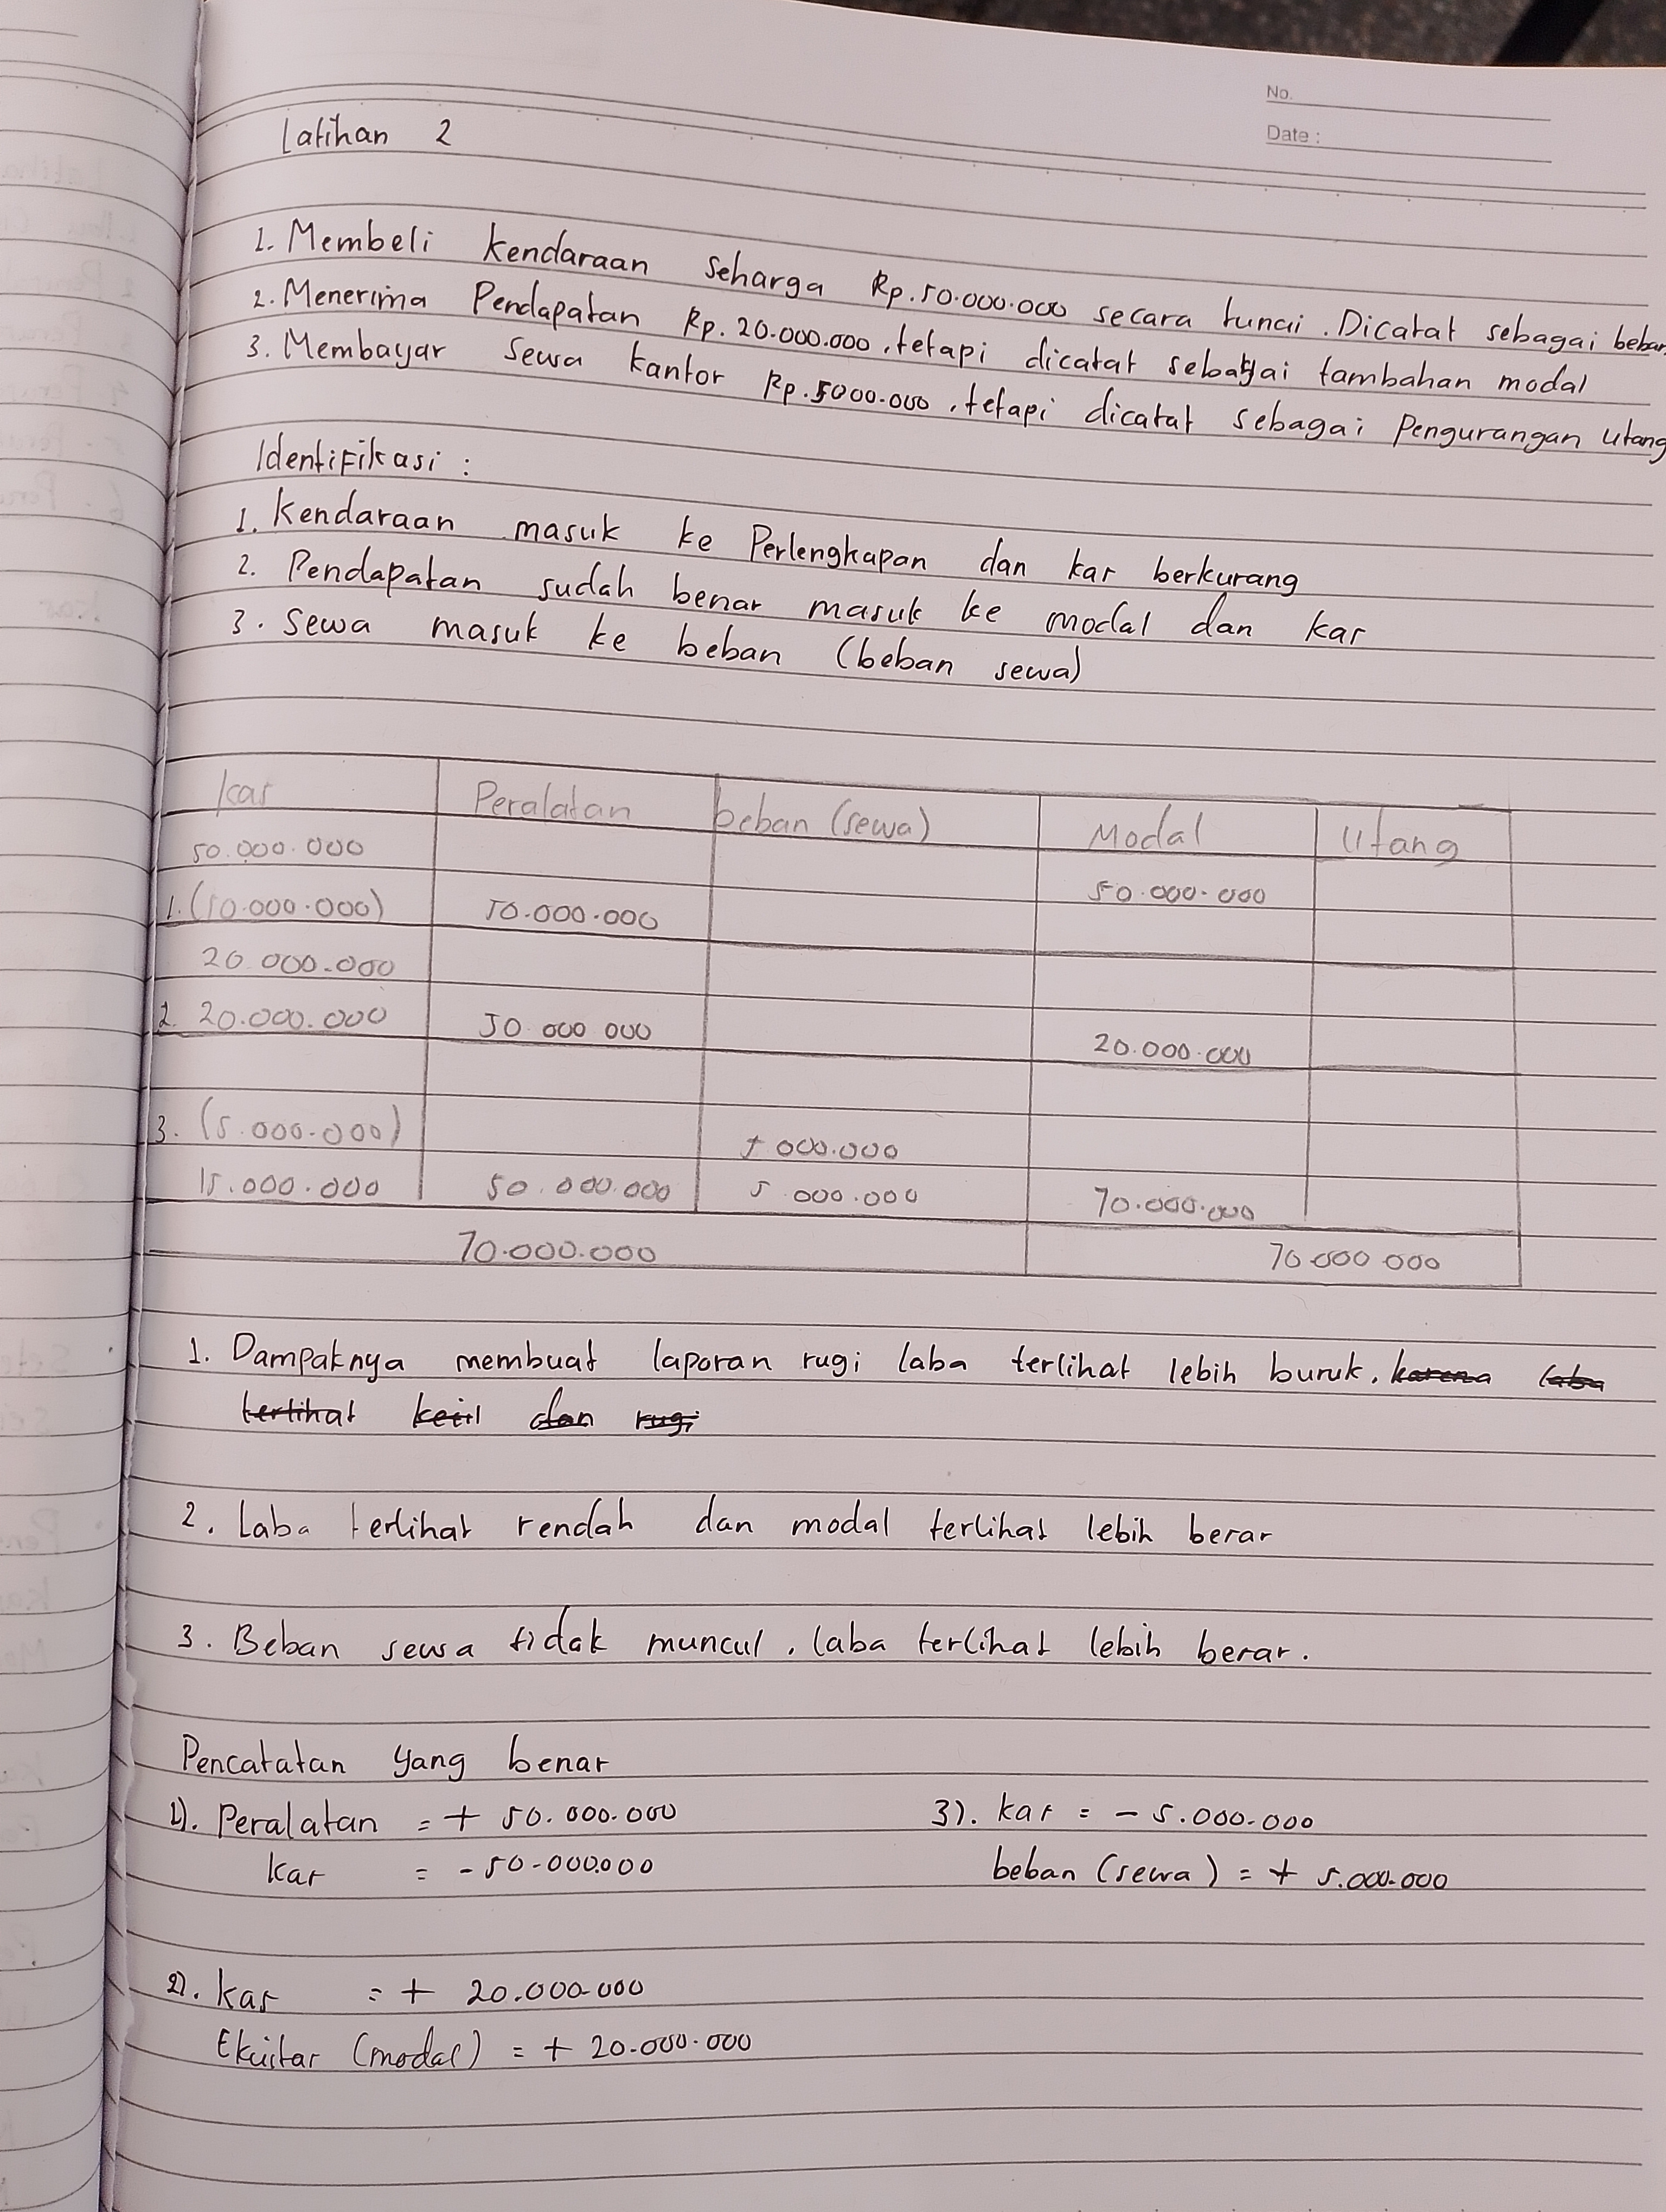 No.
Date :
Latihan 2
1. Membeli kendaraan seharga Rp.50.000.000 secara tunai. Dicatat sebagai beban
2. Menerima Pendapatan Rp.20.000.000, tetapi dicatat sebagai tambahan modal
3. Membayar sewa kantor Rp.5000.000, tetapi dicatat sebagai Pengurangan Utang
Identifikasi :
1. Kendaraan masuk ke Perlengkapan dan kas berkurang
2. Pendapatan sudah benar masuk ke modal dan kas
3. Sewa masuk ke beban (beban sewa)
Kas Peralatan beban (sewa) Modal Utang
50.000.000 50.000.000
1. (50.000.000) 50.000.000
20.000.000
2. 20.000.000 50 000 000 20.000.000
3. (5.000.000) 5 000.000
15.000.000 50.000.000 5.000.000 70.000.000
70.000.000 70 000 000
1. Dampaknya membuat laporan rugi laba terlihat lebih buruk. karena laba
terlihat kecil dan rugi
2. Laba terlihat rendah dan modal terlihat lebih besar
3. Beban sewa tidak muncul, laba terlihat lebih besar.
Pencatatan yang benar
1). Peralatan = + 50.000.000 3). kas = - 5.000.000
kas = - 50.000.000 beban (sewa) = + 5.000.000
2). kas = + 20.000.000
Ekuitas (modal) = + 20.000.000